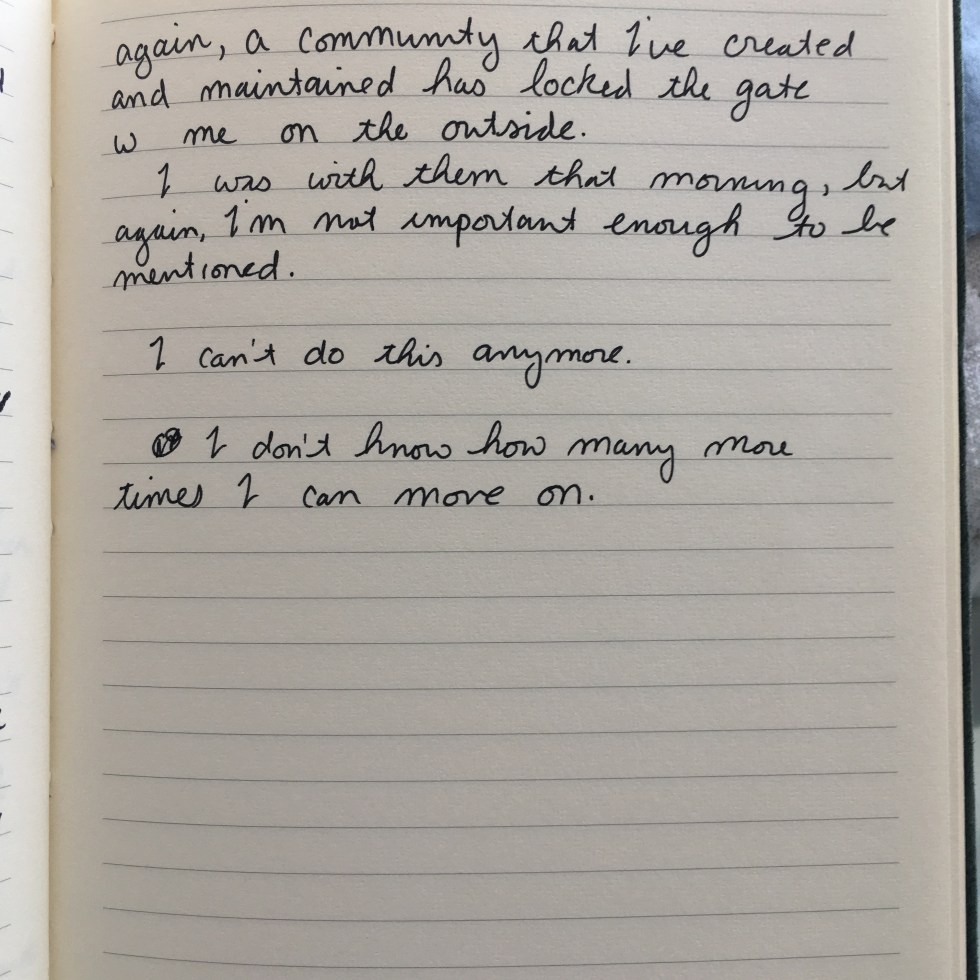 again, a community that I've created
and maintained has locked the gate
w me on the outside.
I was with them that morning, but
again, I'm not important enough to be
mentioned.
I can't do this anymore.
I don't know how many more
times I can move on.